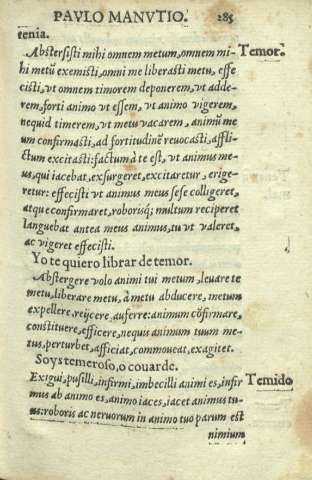 PAVLO MANVTIO. 285
tenia.
Abstersisti mihi omnem metum, omnem mi- Temor.
hi metũ exemisti, omni me liberasti metu, effe
cisti, vt omnem timorem deponerem, vt adde-
rem, forti animo vt essem, vt animo vigerem,
nequid timerem, vt metu vacarem, animũ me
um confirmasti, ad fortitudinẽ reuocasti, affli-
ctum excitasti: factum à te est, vt animus me-
us, qui iacebat, exsurgeret, excitaretur, erige-
retur: effecisti vt animus meus sese colligeret,
atque confirmaret, roborisq; multum reciperet
Languebat antea meus animus, tu vt valeret,
ac vigeret effecisti.
Yo te quiero librar de temor.
Abstergere volo animi tui metum, leuare te
metu, liberare metu, à metu abducere, metum
expellere, reijcere, auferre: animum cõfirmare,
constituere, efficere, nequis animum tuum me-
tus, perturbet, afficiat, commoueat, exagitet.
Soys temeroso, o couarde.
Exigui, pusilli, infirmi, imbecilli animi es, infir Temido
mus ab animo es, animo iaces, iacet animus tu-
us: roboris ac neruorum in animo tuo parum est
nimium